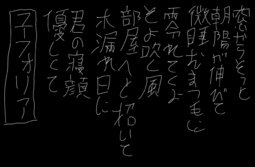 窓がそっと
朝陽が伸びて
微睡むまつ毛に
零れてくる
そよ吹く風
部屋へと招いて
木漏れ日に
君の寝顔
優しくて
ユーフォリア